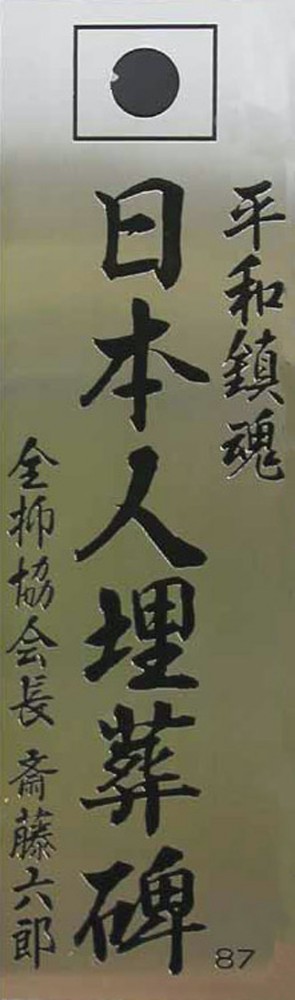 平和鎮魂
日本人埋葬碑
全抑協会長 斎藤六郎
87